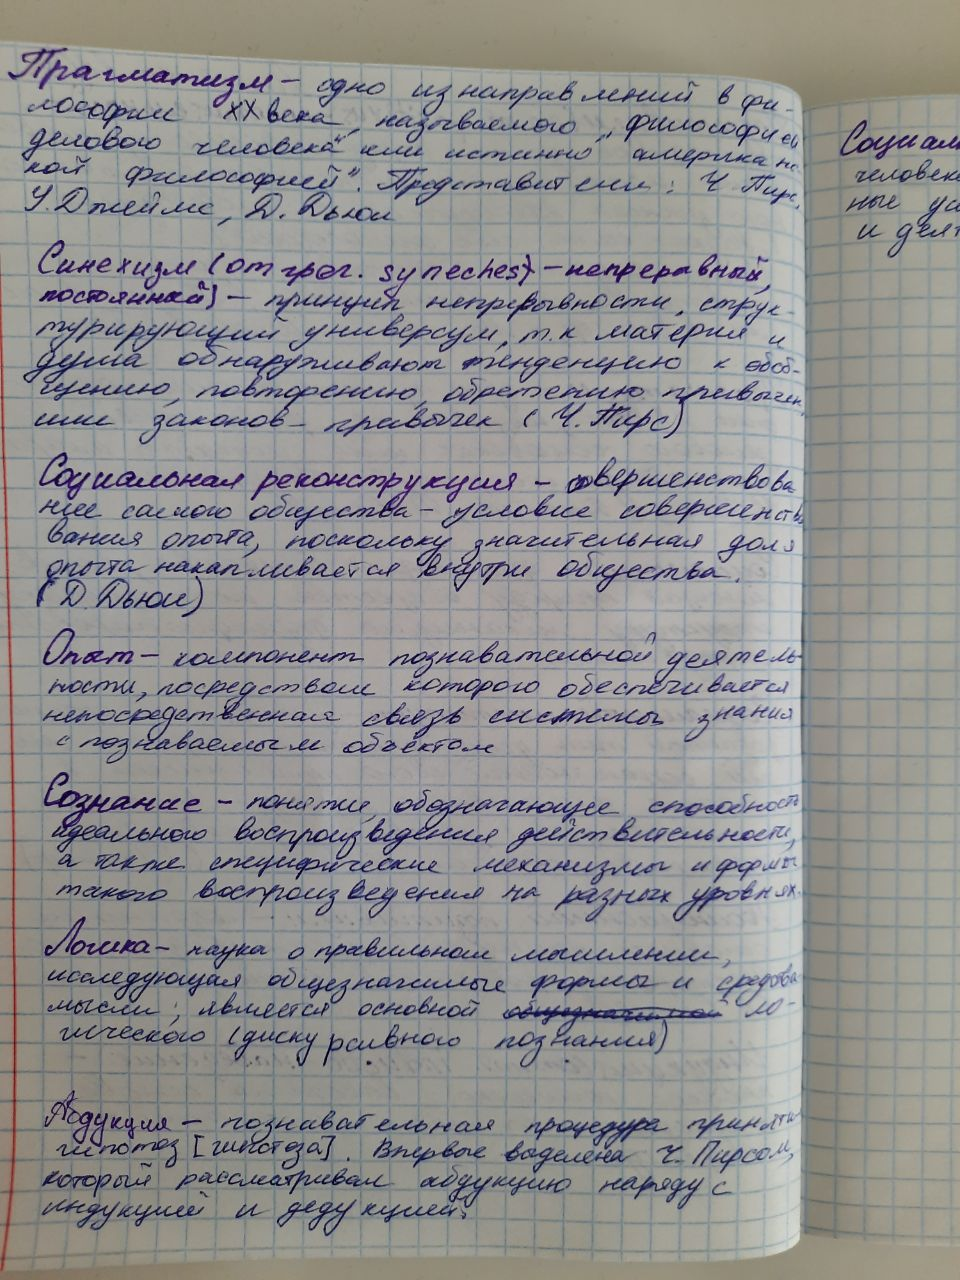 Прагматизм – одно из направлений в фи-
лософии XX века, называемого „философией
делового человека" или истинно американс-
кой философией". Представители: Ч. Пирс,
У. Джеймс, Д. Дьюи
Синехизм (от греч. syneches) – непрерывный,
постоянный) – принцип непрерывности, струк-
турирующий универсум, т.к материя и
душа обнаруживают тенденцию к обоб-
щению, повторению, обретению привычек
или законов – привычек (Ч. Пирс)
Социальная реконструкция – совершенствова
ние самого общества – условие совершенство
вания опыта, поскольку значительная доля
опыта накапливается внутри общества.
(Д Дьюи)
Опыт – компонент познавательной деятель-
ности, посредством которого обеспечивается
непосредственная связь системы знания
с познаваемым объектом
Сознание – понятие, обозначающее способность
идеального воспроизведения действительности,
а также специфические механизмы и формы
такого воспроизведения на разных уровнях.
Логика – наука о правильном мышлении,
исследующая общезначимые формы и средства
мысли; является основной ло-
гического (дискурсивного познания)
Абдукция – познавательная процедура приняти
гипотез [гипотеза]. Впервые выделена Ч. Пирсом,
который рассматривал абдукцию наряду с
индукцией и дедукцией.
Социал
человека
ные ус
и деят